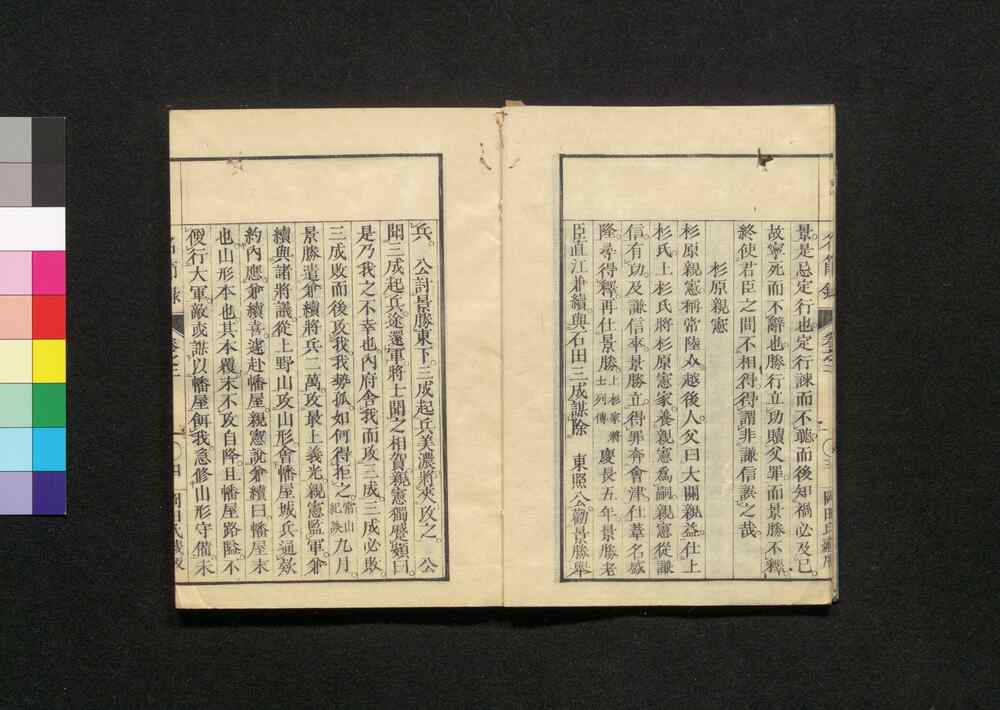 景是忌定行也定行諫而不聽而後知禍必及已
故寧死而不辭也勝行立功贖父罪而景勝不釋
終使君臣之間不相得得謂非謙信誤之哉
杉原親憲
杉原親憲稱常陸介越後人父曰大關親益仕上
杉氏上杉氏將杉原憲家養親憲爲嗣親憲從謙
信有功及謙信卒景勝立得罪奔會津仕葦名盛
隆尋得釋再仕景勝上杉家將士列傳慶長五年景勝老
臣直江兼續與石田三成謀除 東照公勸景勝舉
兵。公討景勝東下。三成起兵美濃將夾攻之。公
聞三成起兵途還軍。將士聞之相賀。親憲獨蹙額曰。
是乃我之不幸也。內府舍我而攻三成。三成必敗。
三成敗而後攻我。我勢孤。如何得拒之。常山紀談九月。
景勝遣兼續將兵二萬攻最上義光。親憲監軍。兼
續與諸將議從上野山攻山形。會幡屋城兵通欵
約內應。兼續喜。遽赴幡屋。親憲說兼續曰。幡屋末
也。山形本也。其本覆末不攻自降。且幡屋路隘。不
便行大軍。敵或謀以幡屋餌我。急修山形守備。未